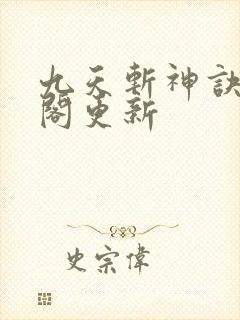 九天斬神訣
閣更新
史宗偉